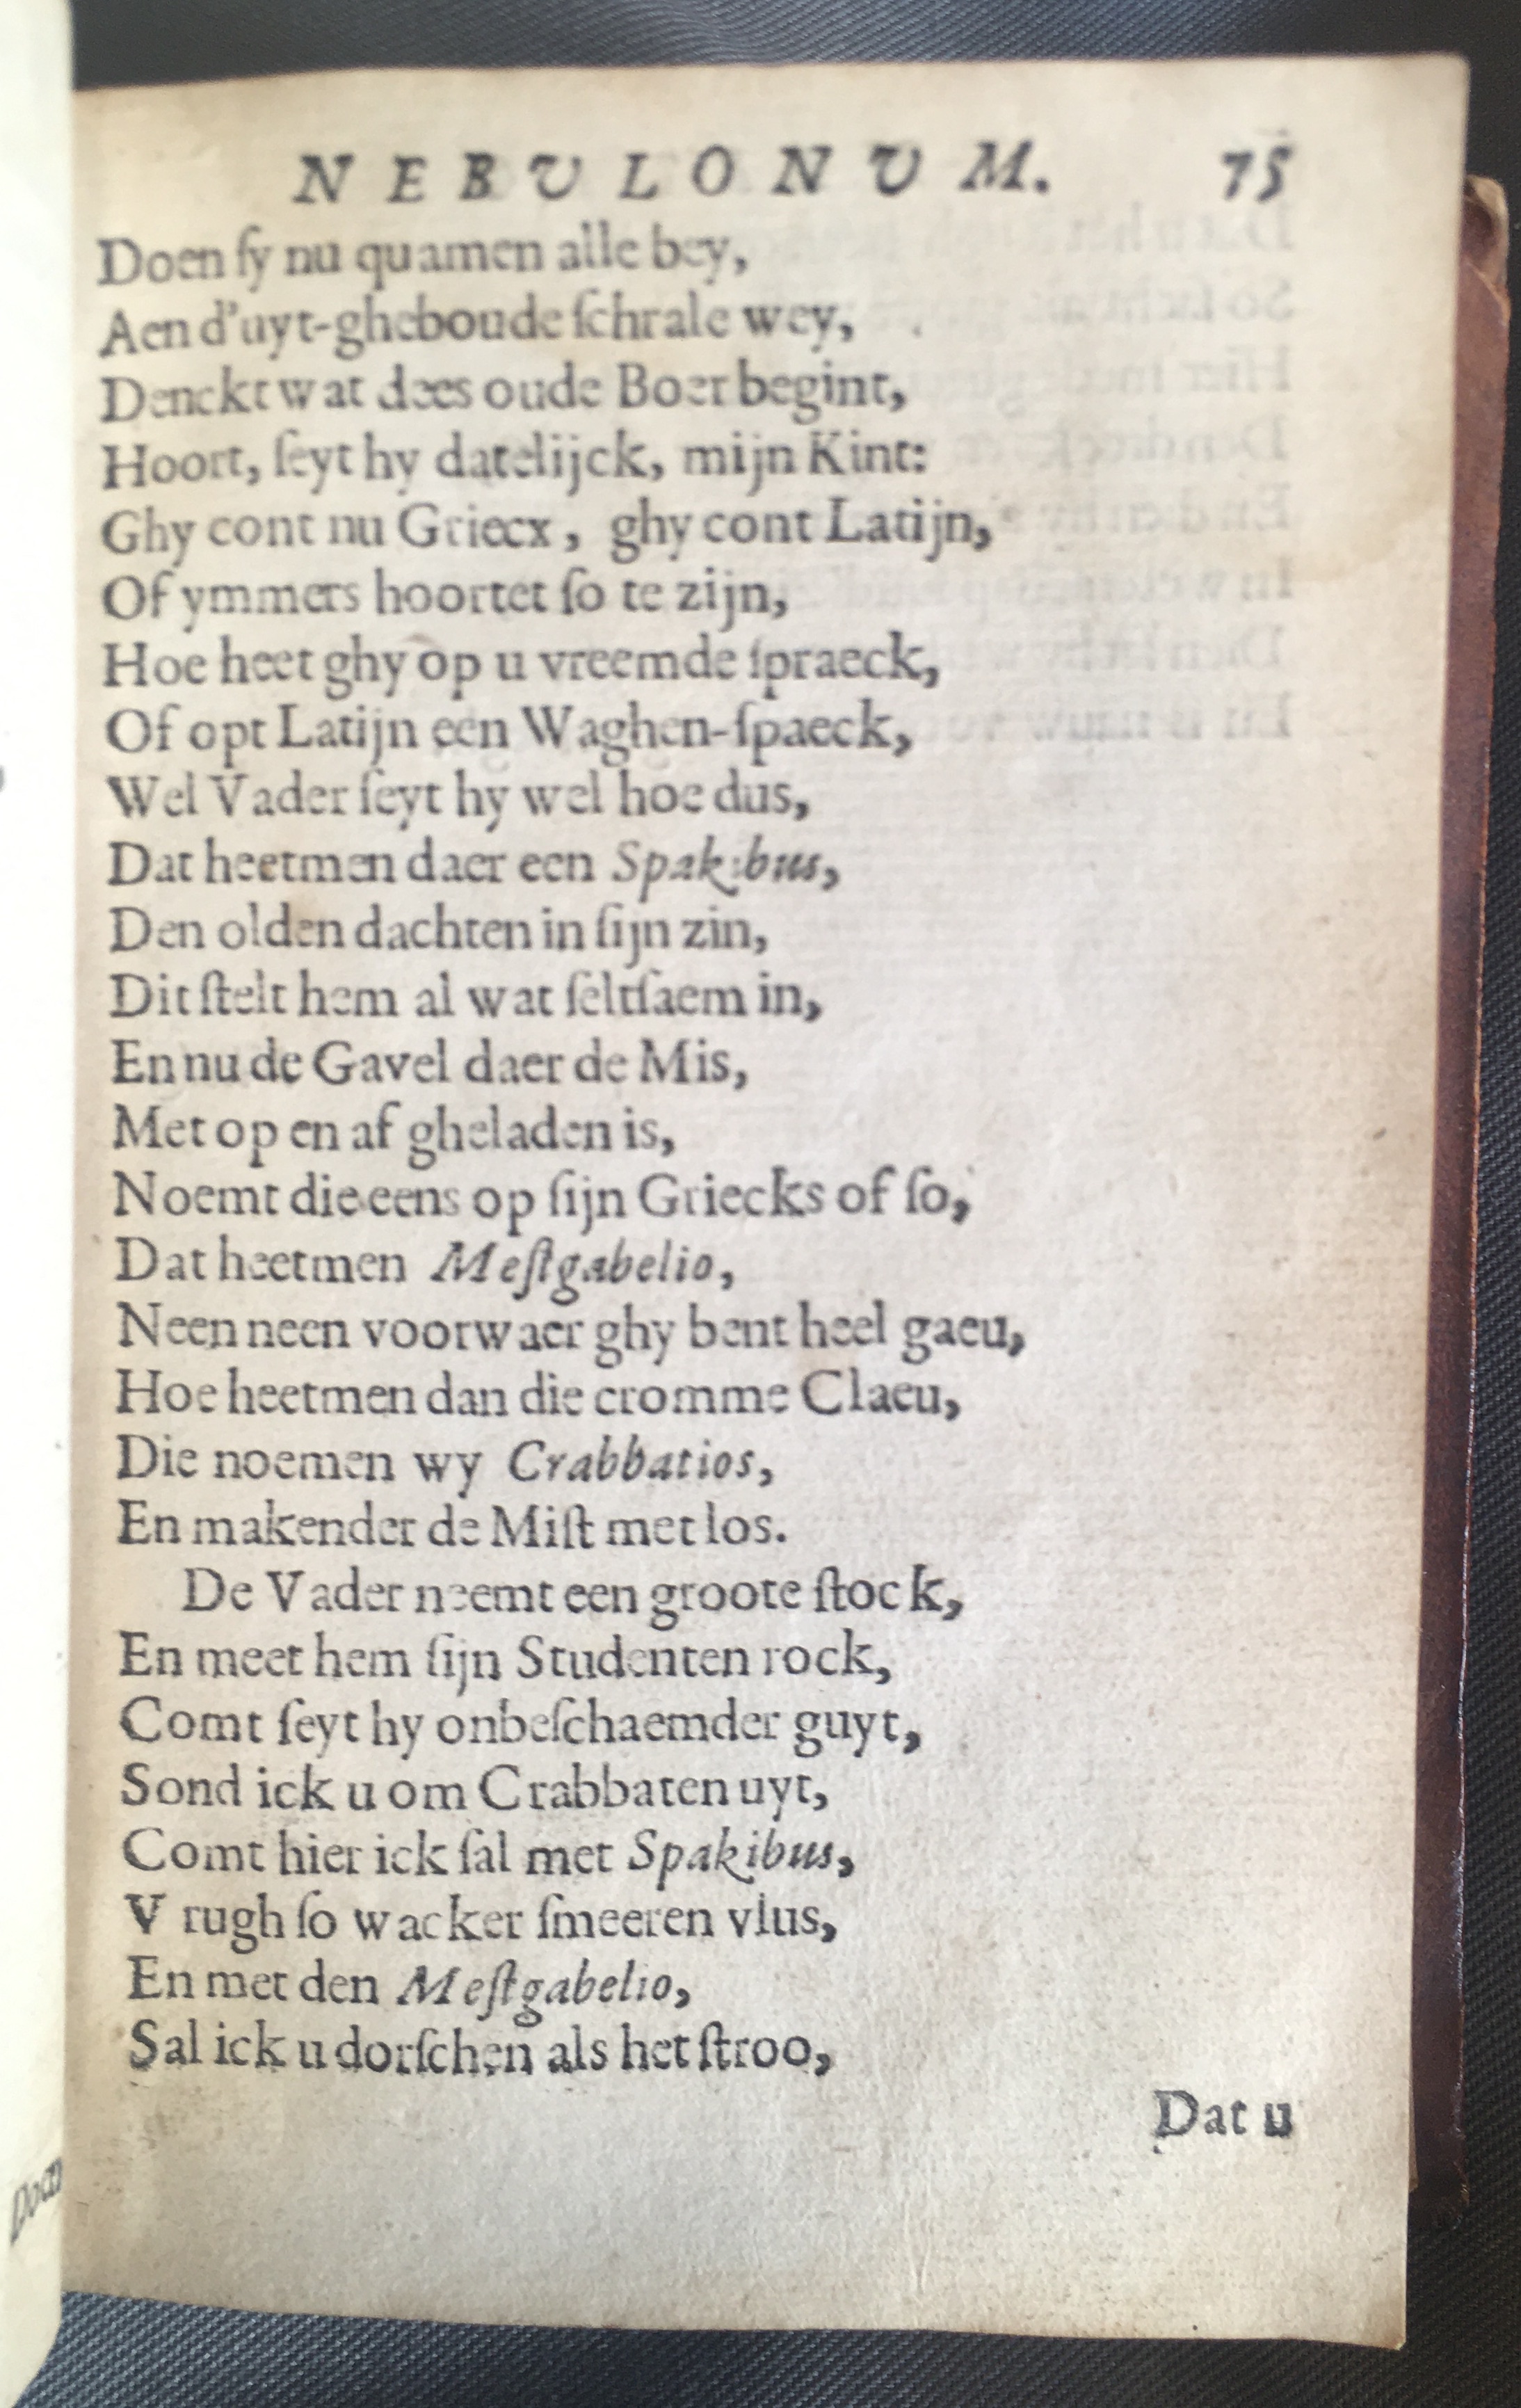 NEBULONUM. 75
Doen ſy nu quamen alle bey,
Aen d'uyt-gheboude ſchrale wey,
Denckt wat dees oude Boer begint,
Hoort, ſeyt hy datelijck, mijn Kint:
Ghy cont nu Griecx, ghy cont Latijn,
Of ymmers hoortet ſo te zijn,
Hoe heet ghy op u vreemde ſpraeck,
Of opt Latijn een Waghen-ſpaeck,
Wel Vader ſeyt hy wel hoe dus,
Dat heetmen daer een Spakibus,
Den olden dachten in ſijn zin,
Dit ſtelt hem al wat ſeltſaem in,
En nu de Gavel daer de Mis,
Met op en af gheladen is,
Noemt die eens op ſijn Griecks of ſo,
Dat heetmen Meſtgabelio,
Neen neen voorwaer ghy bent heel gaeu,
Hoe heetmen dan die cromme Claeu,
Die noemen wy Crabbatios,
En makender de Miſt met los.
De Vader neemt een groote ſtock,
En meet hem ſijn Studenten rock,
Comt ſeyt hy onbeſchaemder guyt,
Sond ick u om Crabbaten uyt,
Comt hier ick ſal met Spakibus,
V rugh ſo wacker ſmeeren vlus,
En met den Meſtgabelio,
Sal ick u dorſchen als het ſtroo,
Dat u